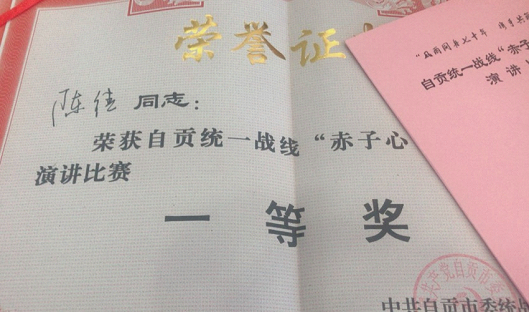 荣誉证
陈绪 同志：
荣获自贡统一战线“赤子心
演讲比赛
一等奖
中共自贡市委统战
共产党自贡市委
自贡统一战线“赤子
演讲